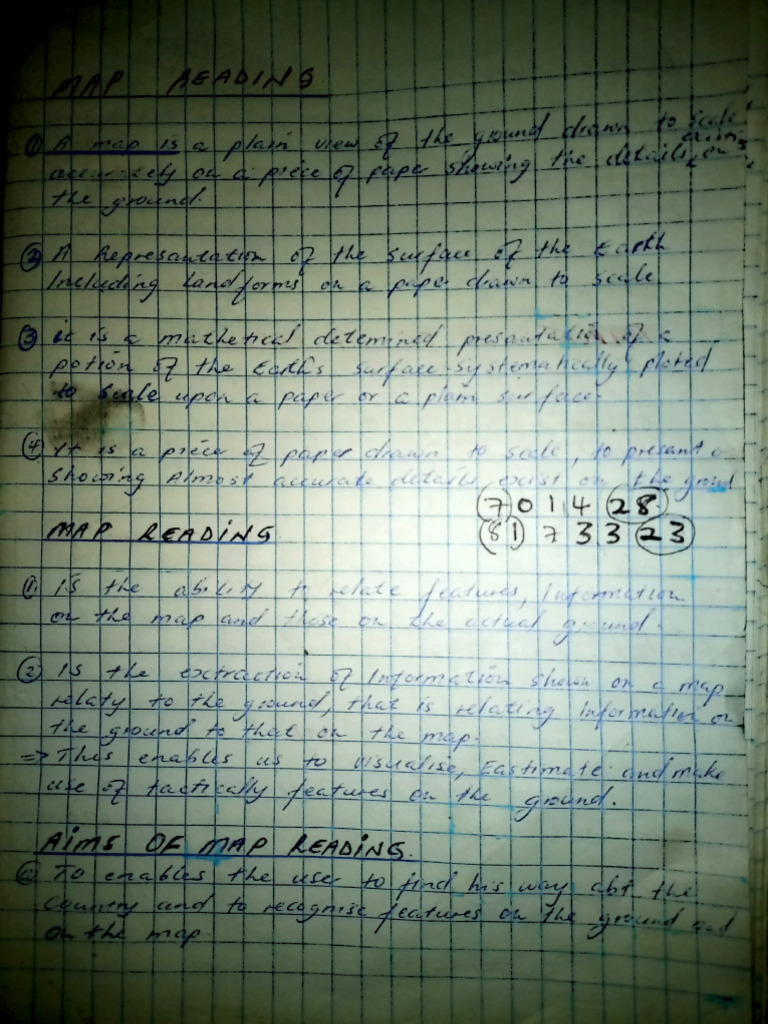 MAP READING
① A map is a plain view of the ground drawn to scale
accurately on a piece of paper showing the details on
the ground.
② A Represantation of the surface of the Earth
Including Landforms on a paper drawn to scale
③ it is a mathetical detemined presentation of a
potion of the Earth's surface systematically ploted
to scale upon a paper or a plain surface.
④ It is a piece of paper drawn to scale, to present
showing Almost accurate details exist on the ground
7 0 1 4 28
MAP READING 81 7 3 3 23
①. Is the ability to relate features, Information
on the map and those on the actual ground.
② Is the extraction of Information shown on a map
relaty to the ground, that is relating Information on
the ground to that on the map.
⇒ This enables us to visualise, Eastimate and make
use of tactically features on the ground.
AIMS OF MAP READING.
ⓐ To enables the user to find his way abt the
Country and to recognise features on the ground and
on the map.